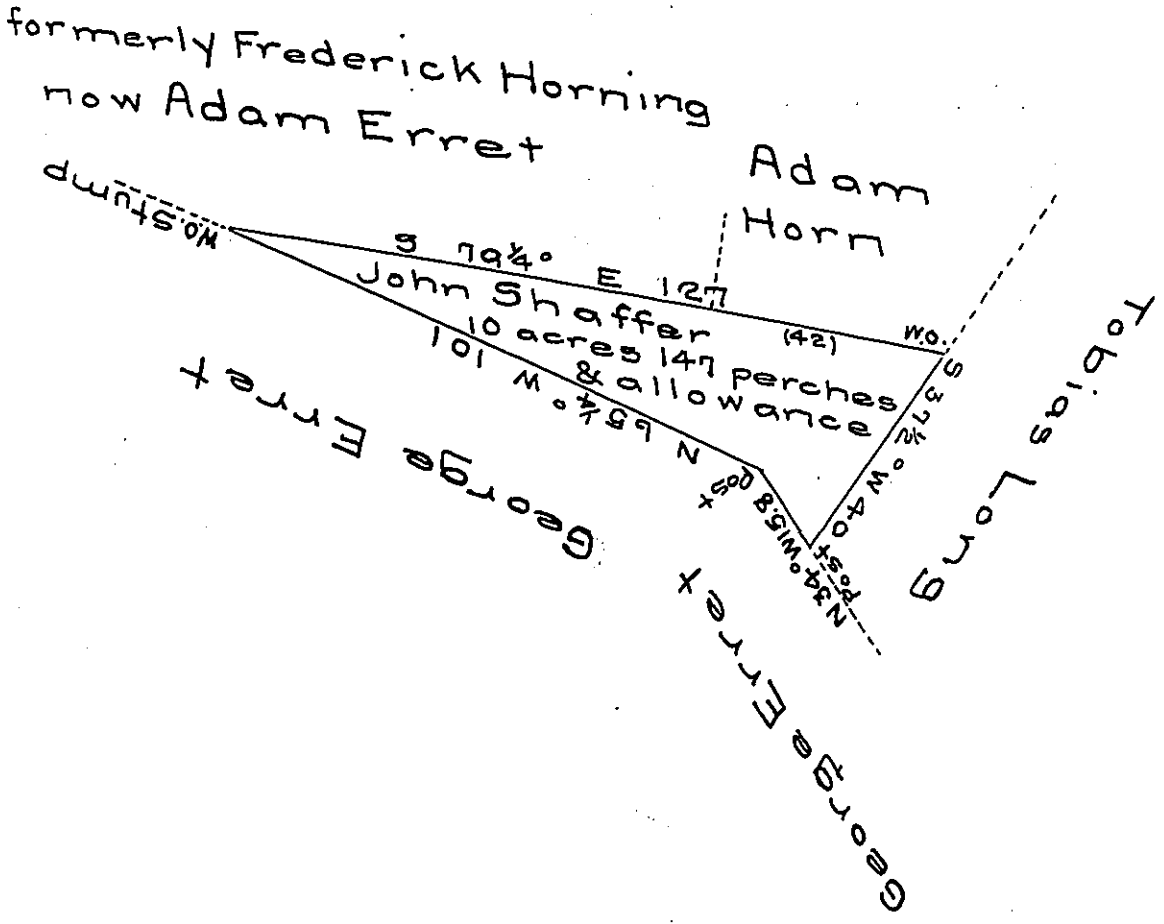 formerly Frederick Horning
now Adam Erret
Adam
Horn
W.O. Stump
S 79¼° E 127
(42)
W.O.
John Shaffer
10 acres 147 perches
& allowance
S 37½° W 40
post
N 34° W 15.8
post
N 65¼° W 101
Tobias Long
George Erret
George Erret